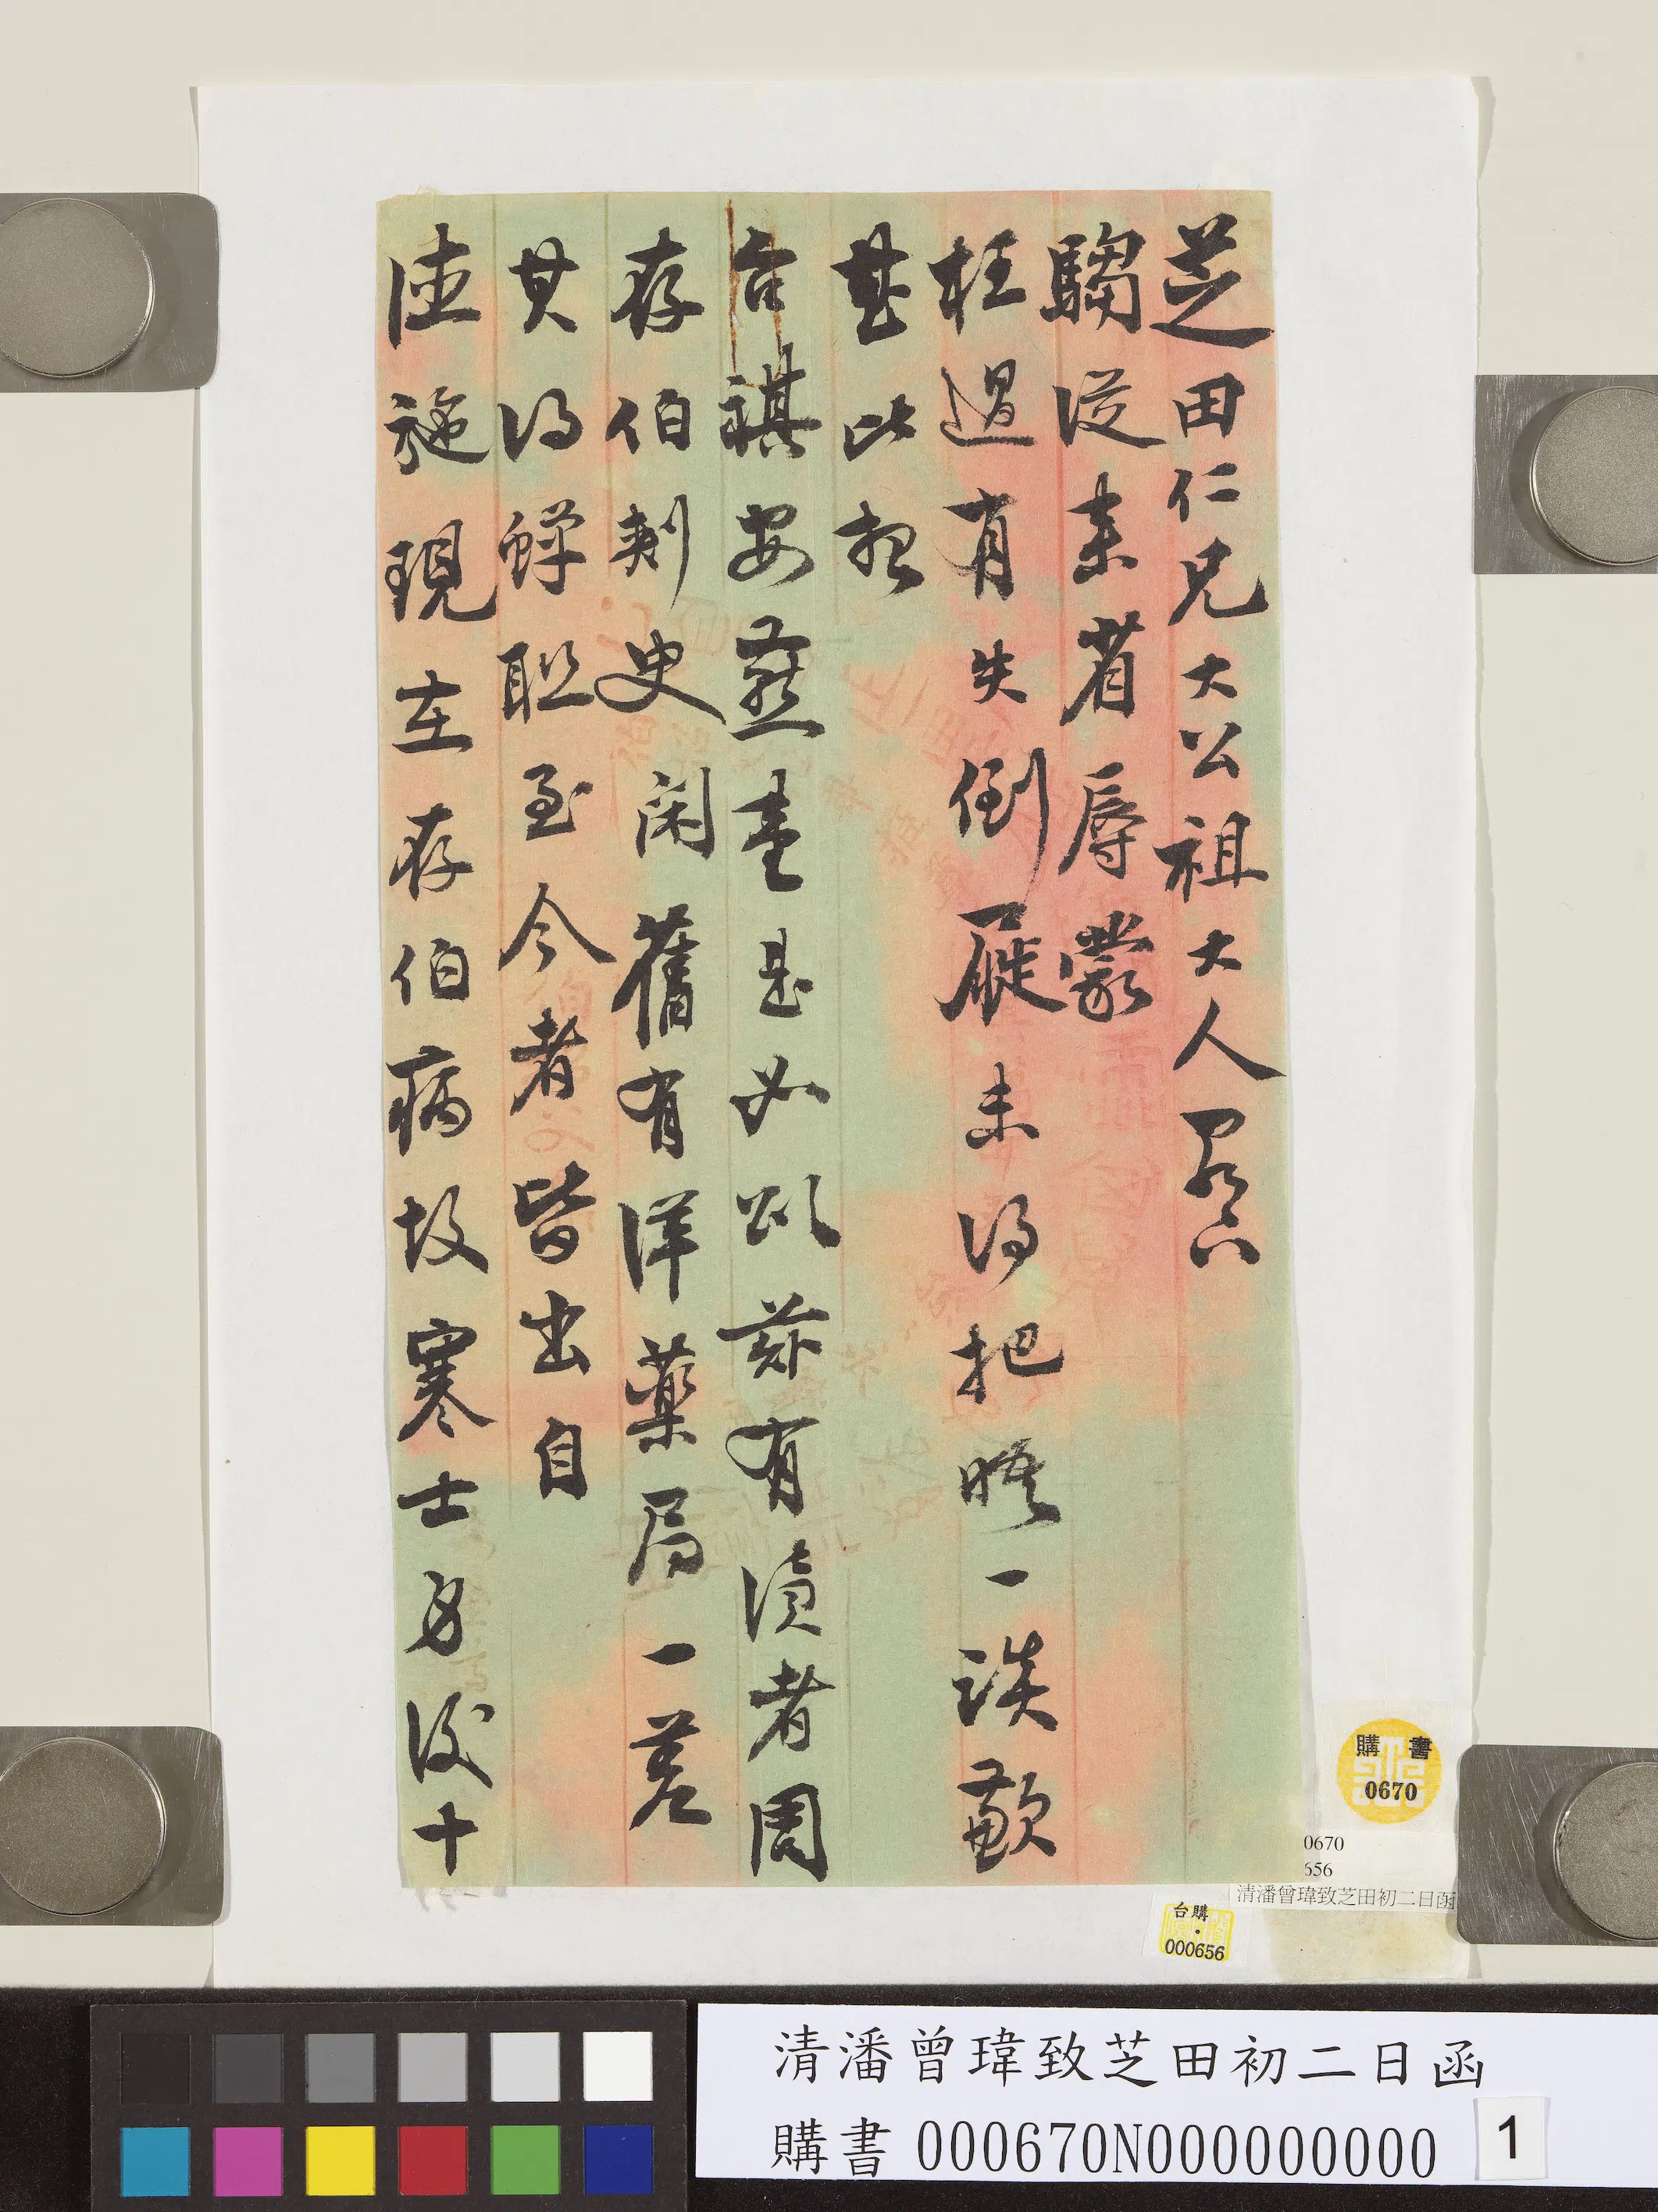 芝田仁兄大公祖大人閣下
騶從來省辱蒙
枉過有失倒屣未得把晤一談歉
甚比想
台祺安燕壹是如頌茲有瀆者周
存伯刺史閑舊有洋藥局一差
其得蟬聯至今者皆出自
德施現在存伯病故寒士身後十
購書
0670
0670
656
清潘曾瑋致芝田初二日函
台購
000656
清潘曾瑋致芝田初二日函
購書000670N000000000
1